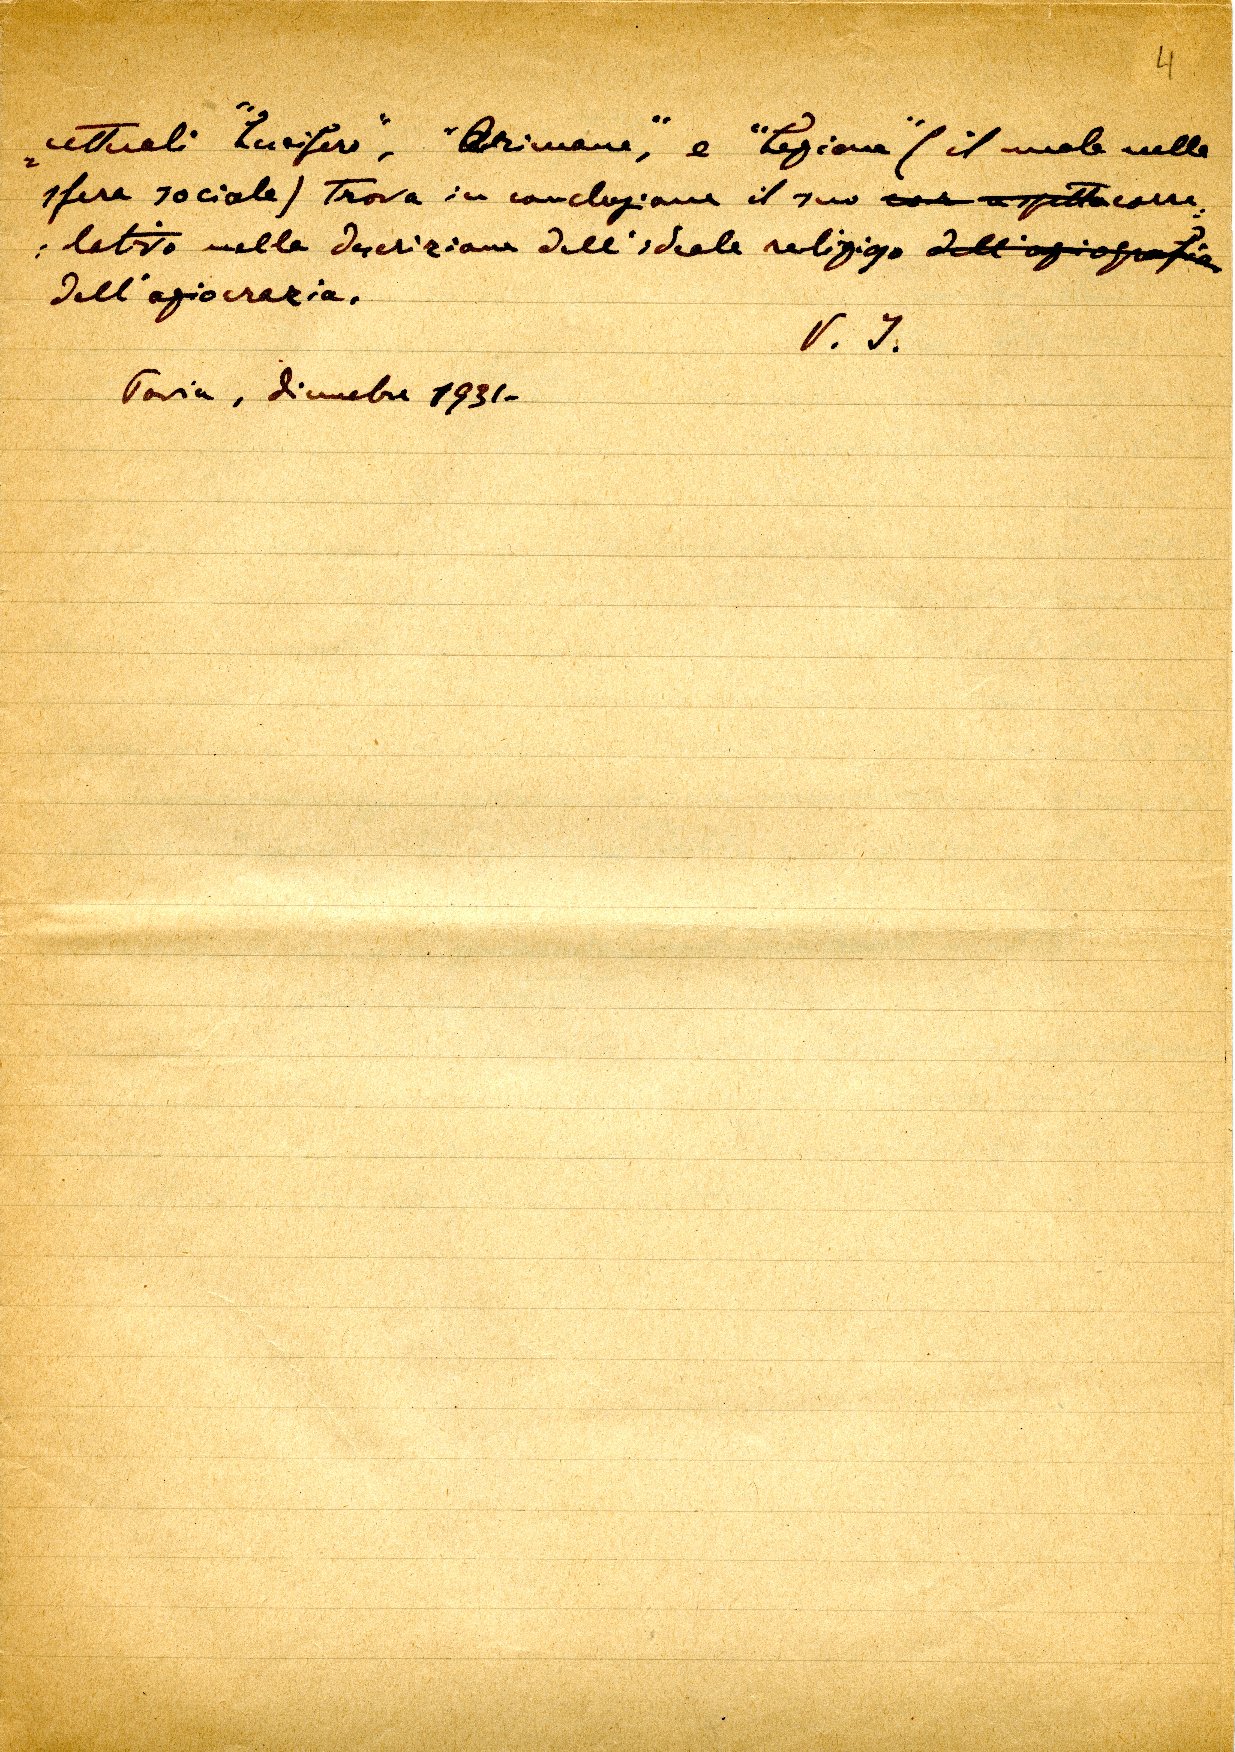 4
=cettuali "Lucifero", "Arimane", e "Legione" (il male nella
sfera sociale) trova in conclusione il suo corre=
=lativo nella descrizione dell'ideale religioso dell'agiografia
dell'agiocrazia.
V. I.
Pavia, dicembre 1931-